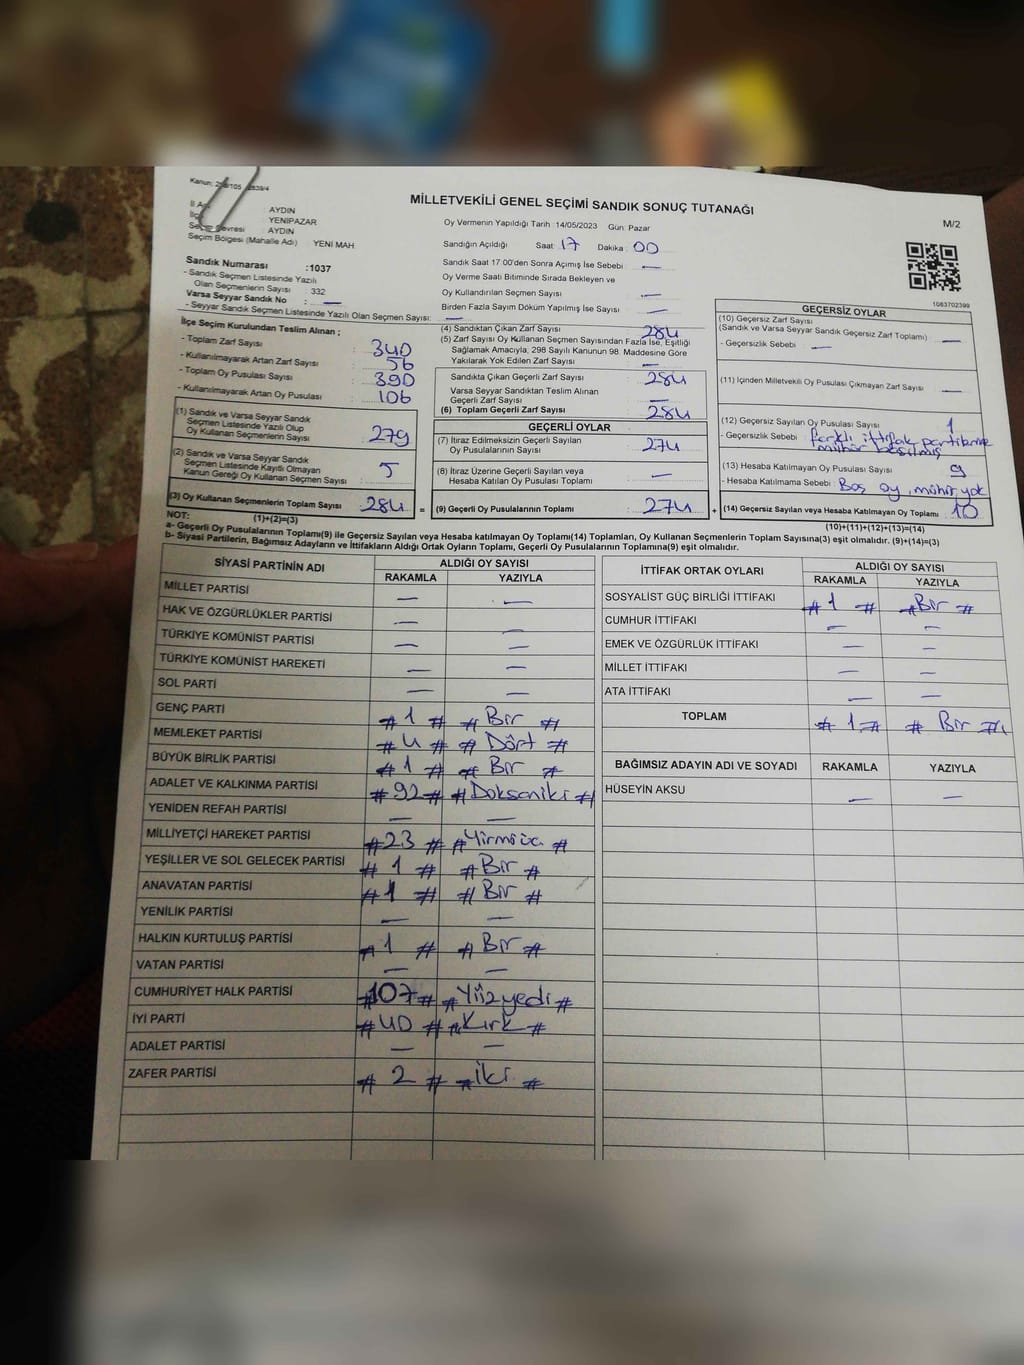 MİLLETVEKİLİ GENEL SEÇİMİ SANDIK SONUÇ TUTANAĞI
M/2
: AYDIN
: YENİPAZAR
: AYDIN
Seçim Bölgesi (Mahalle Adı) YENİ MAH
Sandık Numarası :1037
- Sandık Seçmen Listesinde Yazılı
Olan Seçmenlerin Sayısı : 332
Varsa Seyyar Sandık No : —
- Seyyar Sandık Seçmen Listesinde Yazılı Olan Seçmen Sayısı: —
Oy Vermenin Yapıldığı Tarih :14/05/2023 Gün: Pazar
Sandığın Açıldığı Saat: 17 Dakika : 00
Sandık Saat 17:00'den Sonra Açımış İse Sebebi : —
Oy Verme Saati Bitiminde Sırada Bekleyen ve
Oy Kullandırılan Seçmen Sayısı : —
Birden Fazla Sayım Döküm Yapılmış İse Sayısı : —
1083702399
İlçe Seçim Kurulundan Teslim Alınan ;
- Toplam Zarf Sayısı : 340
- Kullanılmayarak Artan Zarf Sayısı : 56
- Toplam Oy Pusulası Sayısı : 390
- Kullanılmayarak Artan Oy Pusulası : 106
(1) Sandık ve Varsa Seyyar Sandık
Seçmen Listesinde Yazılı Olup
Oy Kullanan Seçmenlerin Sayısı : 279
(2) Sandık ve Varsa Seyyar Sandık
Seçmen Listesinde Kayıtlı Olmayan
Kanun Gereği Oy Kullanan Seçmen Sayısı : 5
(3) Oy Kullanan Seçmenlerin Toplam Sayısı : 284
(1)+(2)=(3)
(4) Sandıktan Çıkan Zarf Sayısı : 284
(5) Zarf Sayısı Oy Kullanan Seçmen Sayısından Fazla İse, Eşitliği
Sağlamak Amacıyla, 298 Sayılı Kanunun 98. Maddesine Göre
Yakılarak Yok Edilen Zarf Sayısı : —
Sandıkta Çıkan Geçerli Zarf Sayısı : 284
Varsa Seyyar Sandıktan Teslim Alınan
Geçerli Zarf Sayısı : —
(6) Toplam Geçerli Zarf Sayısı : 284
GEÇERLİ OYLAR
(7) İtiraz Edilmeksizin Geçerli Sayılan
Oy Pusulalarının Sayısı : 274
(8) İtiraz Üzerine Geçerli Sayılan veya
Hesaba Katılan Oy Pusulası Toplamı : —
= (9) Geçerli Oy Pusulalarının Toplamı : 274 +
GEÇERSİZ OYLAR
(10) Geçersiz Zarf Sayısı
(Sandık ve Varsa Seyyar Sandık Geçersiz Zarf Toplamı) : —
- Geçersizlik Sebebi : —
(11) İçinden Milletvekili Oy Pusulası Çıkmayan Zarf Sayısı : —
(12) Geçersiz Sayılan Oy Pusulası Sayısı : 1
- Geçersizlik Sebebi : farklı ittifak partilerine
mühür basılmış
(13) Hesaba Katılmayan Oy Pusulası Sayısı : 9
- Hesaba Katılmama Sebebi : Boş oy, mühür yok
(14) Geçersiz Sayılan veya Hesaba Katılmayan Oy Toplamı : 10
(10)+(11)+(12)+(13)=(14)
NOT:
a- Geçerli Oy Pusulalarının Toplamı(9) ile Geçersiz Sayılan veya Hesaba katılmayan Oy Toplamı(14) Toplamları, Oy Kullanan Seçmenlerin Toplam Sayısına(3) eşit olmalıdır. (9)+(14)=(3)
b- Siyasi Partilerin, Bağımsız Adayların ve İttifakların Aldığı Ortak Oyların Toplamı, Geçerli Oy Pusulalarının Toplamına(9) eşit olmalıdır.
SİYASİ PARTİNİN ADI ALDIĞI OY SAYISI
RAKAMLA YAZIYLA
MİLLET PARTİSİ — —
HAK VE ÖZGÜRLÜKLER PARTİSİ —
TÜRKİYE KOMÜNİST PARTİSİ — —
TÜRKİYE KOMÜNİST HAREKETİ — —
SOL PARTİ — —
GENÇ PARTİ # 1 # # Bir #
MEMLEKET PARTİSİ # 4 # # Dört #
BÜYÜK BİRLİK PARTİSİ # 1 # # Bir #
ADALET VE KALKINMA PARTİSİ # 92 # # Doksaniki #
YENİDEN REFAH PARTİSİ — —
MİLLİYETÇİ HAREKET PARTİSİ # 23 # # Yirmiüç #
YEŞİLLER VE SOL GELECEK PARTİSİ # 1 # # Bir #
ANAVATAN PARTİSİ # 1 # # Bir #
YENİLİK PARTİSİ — —
HALKIN KURTULUŞ PARTİSİ # 1 # # Bir #
VATAN PARTİSİ — —
CUMHURİYET HALK PARTİSİ # 107 # # Yüzyedi #
İYİ PARTİ # 40 # # Kırk #
ADALET PARTİSİ — —
ZAFER PARTİSİ # 2 # # iki #
İTTİFAK ORTAK OYLARI ALDIĞI OY SAYISI
RAKAMLA YAZIYLA
SOSYALİST GÜÇ BİRLİĞİ İTTİFAKI # 1 # # Bir #
CUMHUR İTTİFAKI — —
EMEK VE ÖZGÜRLÜK İTTİFAKI — —
MİLLET İTTİFAKI — —
ATA İTTİFAKI — —
TOPLAM # 1 # # Bir #
BAĞIMSIZ ADAYIN ADI VE SOYADI RAKAMLA YAZIYLA
HÜSEYİN AKSU — —